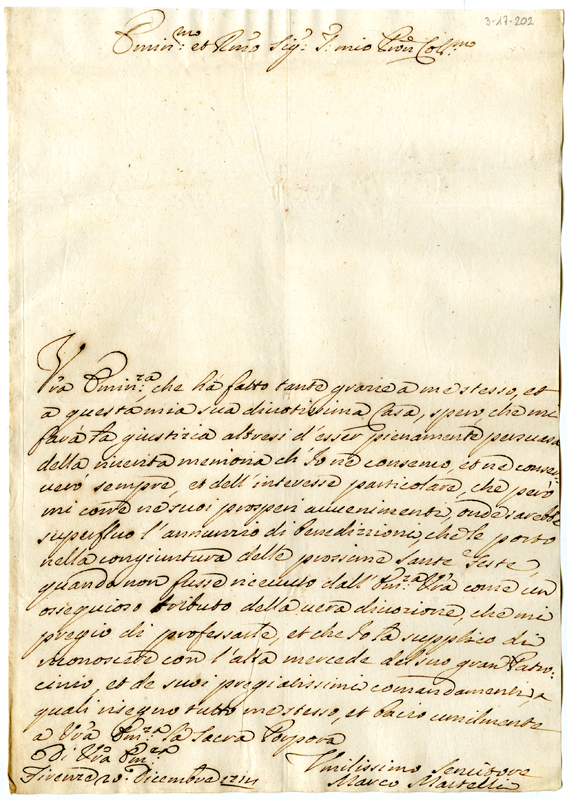 3-17-202
Emin.mo et Rmo Sig.r J. mio Pron Coll.mo
Vra Emin.za, che hà fatto tante grazie a me stesso, et
a questa mia sua divotissima Casa, spero che mi
farà la giustizia altresi d'esser pienamente persuasa
della riverita memoria ch'Io ne conservo, et ne conser-
verò sempre, et dell'interesse particolare, che però
mi corre ne suoi prosperi avvenimenti, onde sarebbe
superfluo l'annunzio di benedizzioni, che le porto
nella congiuntura delle prossime Sante Feste,
quando non fusse ricevuto dall'Em.za Vra come un
ossequioso tributo della vera divozione, che mi
pregio di professarle, et che Io la supplico di
riconoscere con l'alta mercede del suo gran Patro:
cinio, et de suoi pregiatissimi comandamenti, a
quali rasegno tutto me stesso, et bacio umilmente
a Vra Em.za la Sacra Porpora
Di Vra Em.za
Firenze Dicembre
Umilissimo Servitore
Marco Martelli